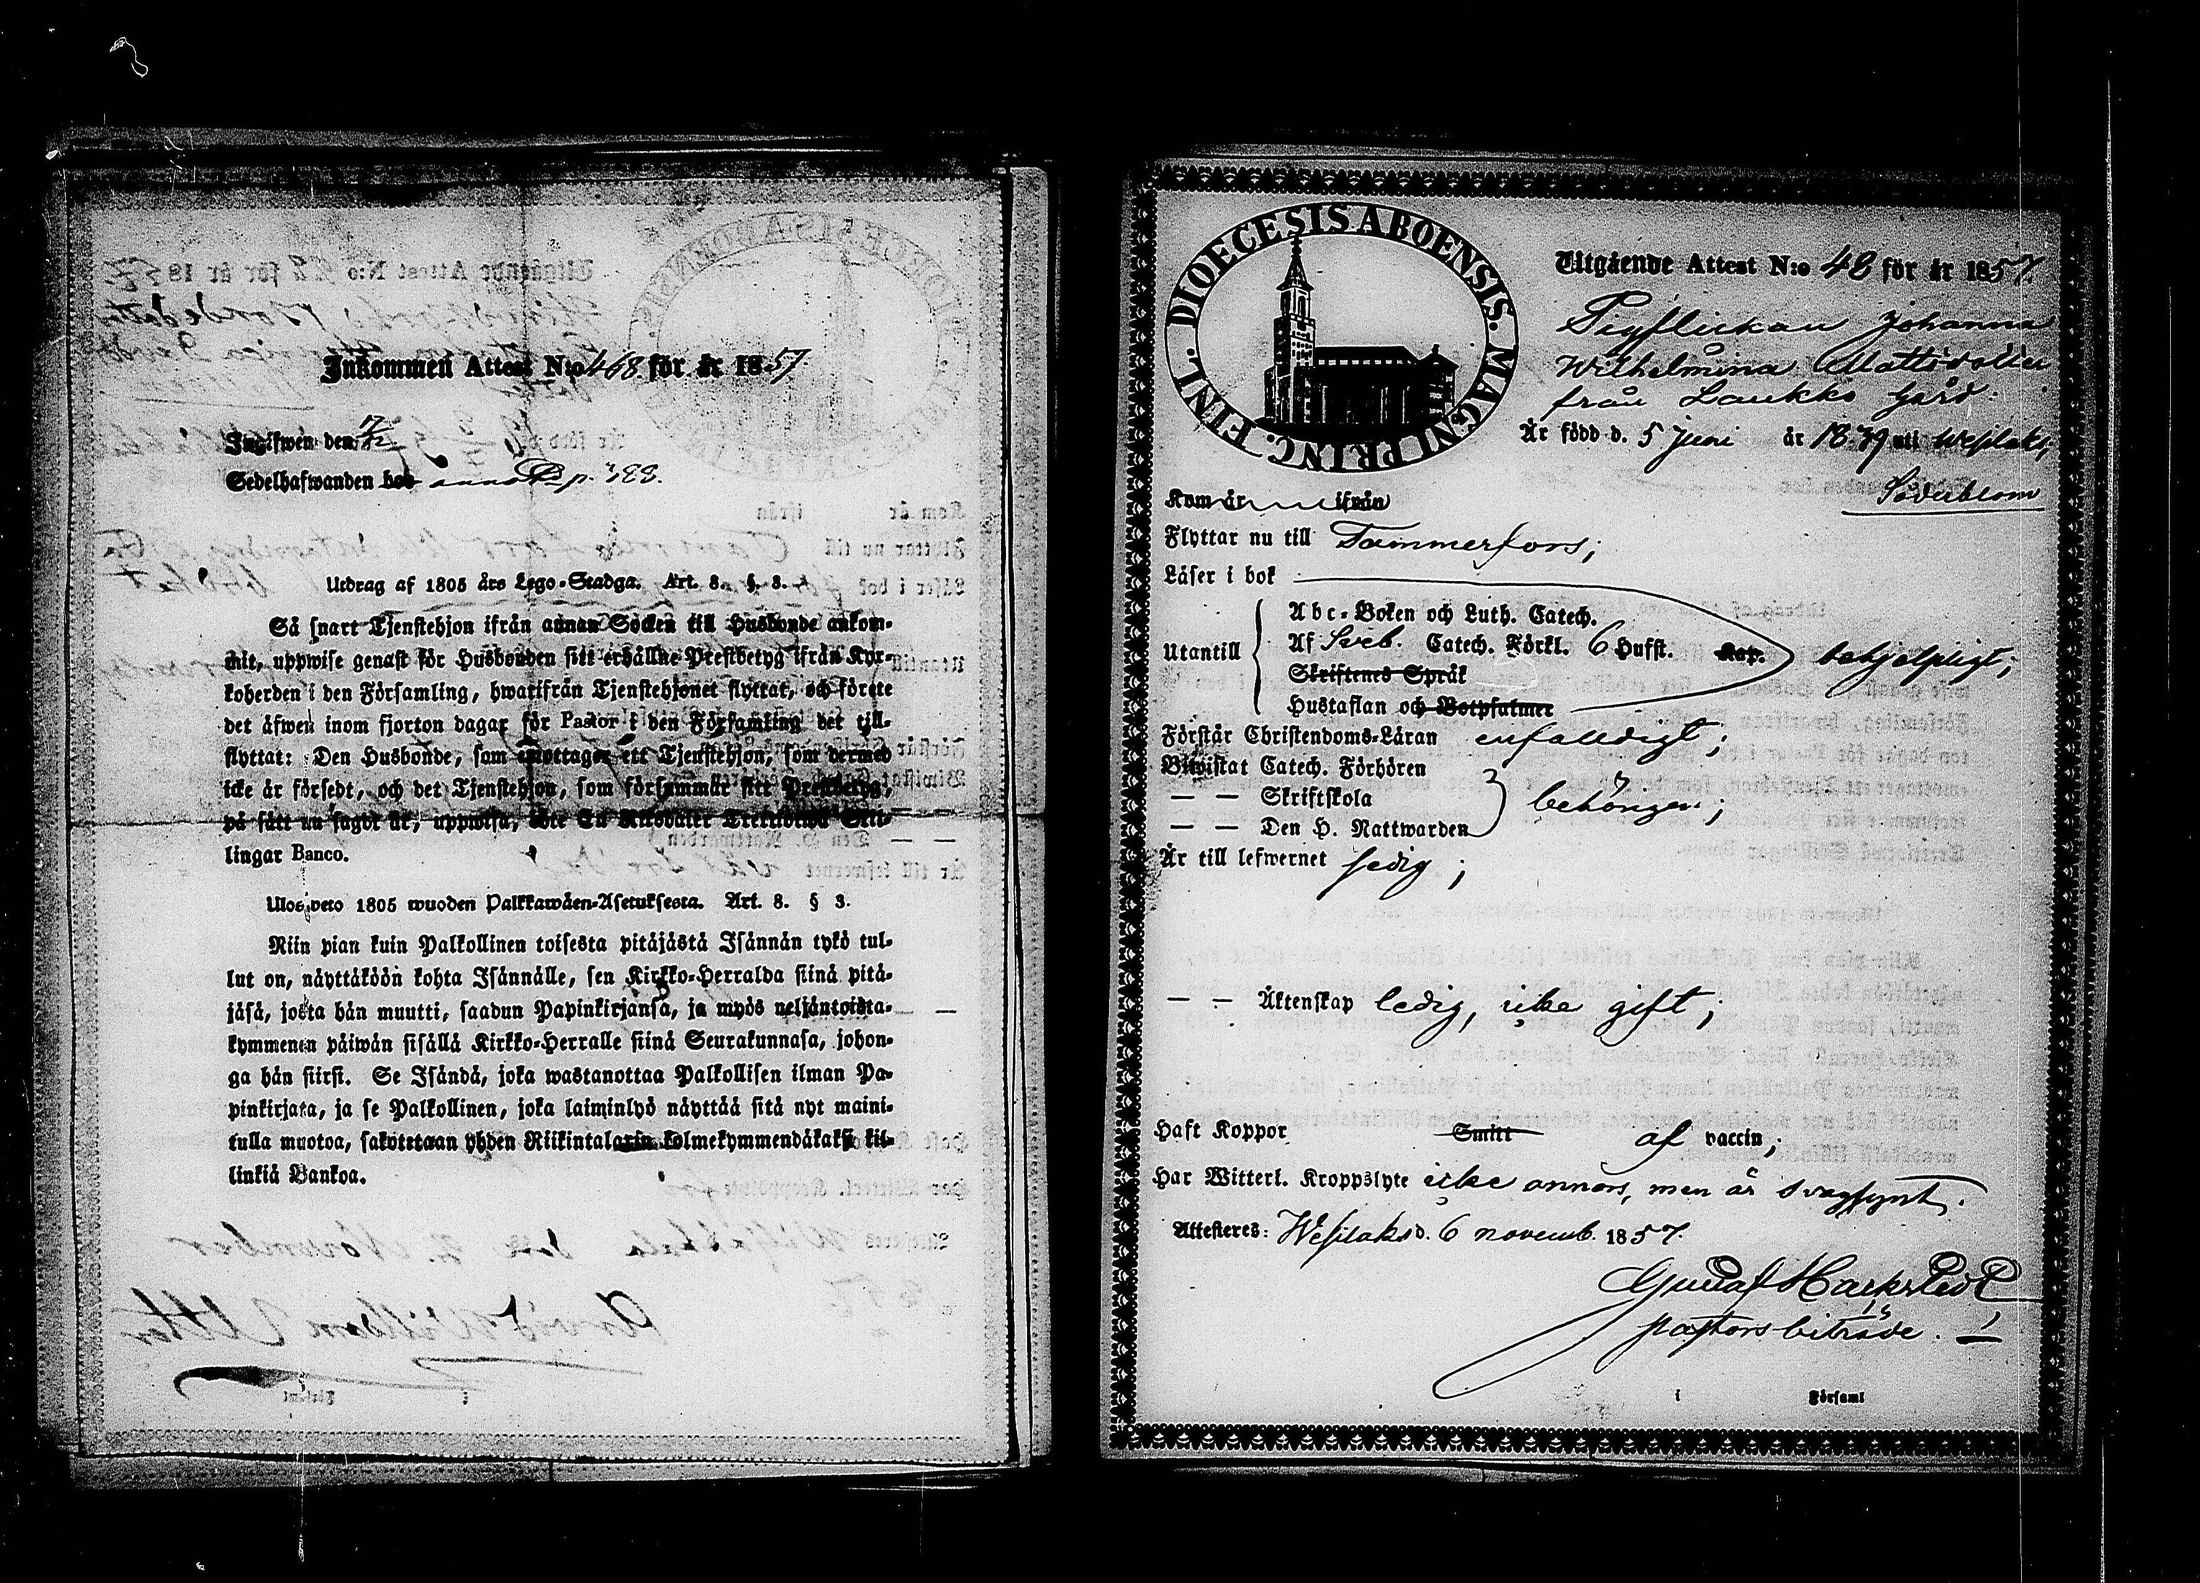 Inkommen Attest N:o 468 för år 1857.
Ingifwen den 17/12 57
Sedelhafwanden hos p. 388.
Utdrag af 1805 års Lego-Stadga. Art. 8. § 3.
Så snart Tjenstehjon ifrån annan Socken till Husbonde ankom-
mit, uppwise genast för Husbonden sitt erhållne Prestbetyg ifrån Kyr-
koherden i den Församling, hwarifrån Tjenstehjonet flyttat, och förete
det äfwen inom fjorton dagar för Pastor i den Församling det till-
flyttat: Den Husbonde, som emottager ett Tjenstehjon, som dermed
icke är försedt, och det Tjenstehjon, som försummar sitt Prestbetyg,
på sätt nu sagdt är, uppwisa, böte En Riksdaler Trettiotwå Skil-
lingar Banco.
Ulosweto 1805 wuoden Palkkawäen-Asetuksesta. Art. 8. § 3.
Niin pian kuin Palkollinen toisesta pitäjästä Isännän tykö tul-
lut on, näyttäköön kohta Isännälle, sen Kirkko-Herralda siinä pitä-
jäsä, josta hän muutti, saadun Papinkirjansa, ja myös neljäntoista-
kymmenen päiwän sisällä Kirkko-Herralle siinä Seurakunnasa, johon-
ga hän siirsi. Se Isändä, joka wastanottaa Palkollisen ilman Pa-
pinkirjata, ja se Palkollinen, joka laiminlyö näyttää sitä nyt maini-
tulla muotoa, sakotetaan yhden Riikintalarin kolmekymmendäkaksi kil-
linkiä Bankoa.
DIOECESIS ABOENSIS. MAGNI PRINC. FINL.
Utgående Attest N:o 48 för år 1857.
Pigflickan Johanna
Wilhelmina Mattsdotter
från Laukko Gård.
Är född d. 5 Juni år 1839 uti Wesilaks,
Söderblom
Kom år ifrån
Flyttar nu till Tammerfors;
Läser i bok
Abc-Boken och Luth. Catech.
Utantill Af Sveb. Catech. Förkl. 6 Hufst. Kap. behjelpligt;
Skriftenes Språk
Hustaflan och Botpsalmer
Förstår Christendoms-Läran enfaldigt;
Biwistat Catech. Förhören
— — Skriftskola behörigen;
— — Den H. Nattwarden
Är till lefwernet ledig;
— — Äktenskap ledig, icke gift;
Haft Koppor Smitt af vaccin;
Har Witterl. Kroppslyte icke annors, men är svagsynt.
Attesteras: Wesilaks d. 6 novemb. 1857.
Gustaf
pastors biträde.
i Församl